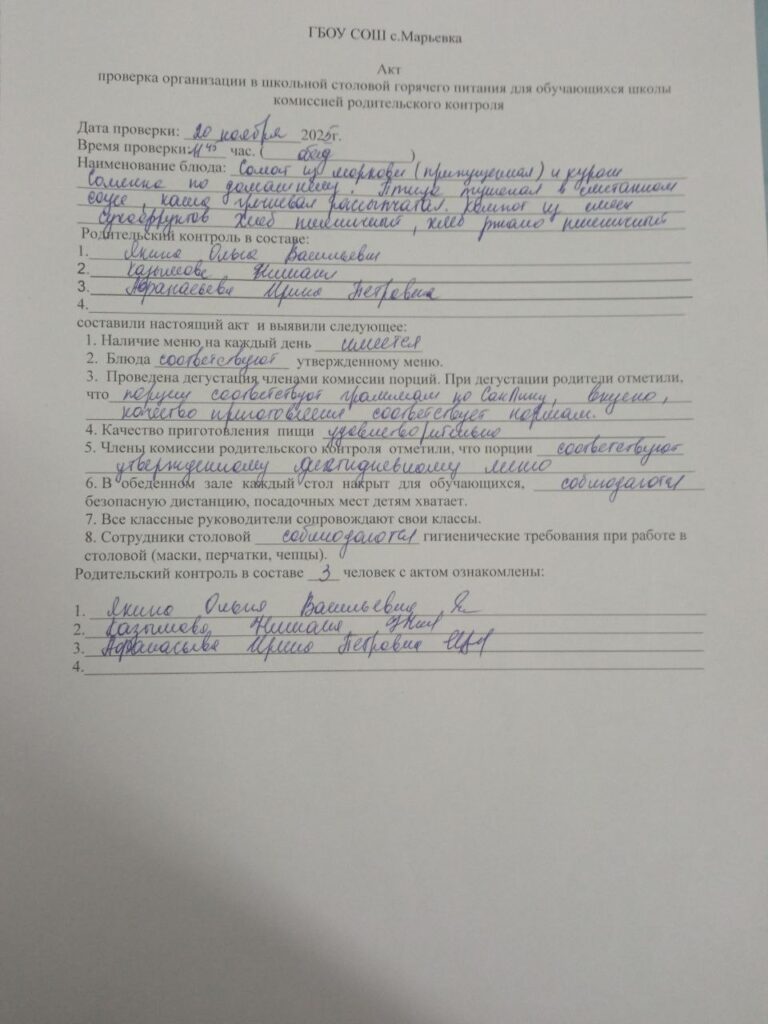 ГБОУ СОШ с.Марьевка
Акт
проверка организации в школьной столовой горячего питания для обучающихся школы
комиссией родительского контроля
Дата проверки: 20 ноября 2025г.
Время проверки: 11 45 час. ( обед )
Наименование блюда: Салат из моркови (припущенная) и кураги
по домашнему. Птица тушеная в сметанном
соусе, каша гречневая рассыпчатая. Компот из смеси
сухофруктов Хлеб пшеничный, хлеб ржано пшеничный
Родительский контроль в составе:
1. Якина Ольга Васильевна
2. Казымова
3. Афанасьева Ирина Петровна
4.
составили настоящий акт и выявили следующее:
1. Наличие меню на каждый день имеется
2. Блюда соответствуют утвержденному меню.
3. Проведена дегустация членами комиссии порций. При дегустации родители отметили,
что порции соответствуют граммам по СанПину, вкусно,
качество приготовления соответствует нормам.
4. Качество приготовления пищи удовлетворительно
5. Члены комиссии родительского контроля отметили, что порции соответствуют
утвержденному десятидневному меню
6. В обеденном зале каждый стол накрыт для обучающихся, соблюдается
безопасную дистанцию, посадочных мест детям хватает.
7. Все классные руководители сопровождают свои классы.
8. Сотрудники столовой соблюдаются гигиенические требования при работе в
столовой (маски, перчатки, чепцы).
Родительский контроль в составе 3 человек с актом ознакомлены:
1. Якина Ольга Васильевна
2. Казымова
3. Афанасьева Ирина Петровна
4.